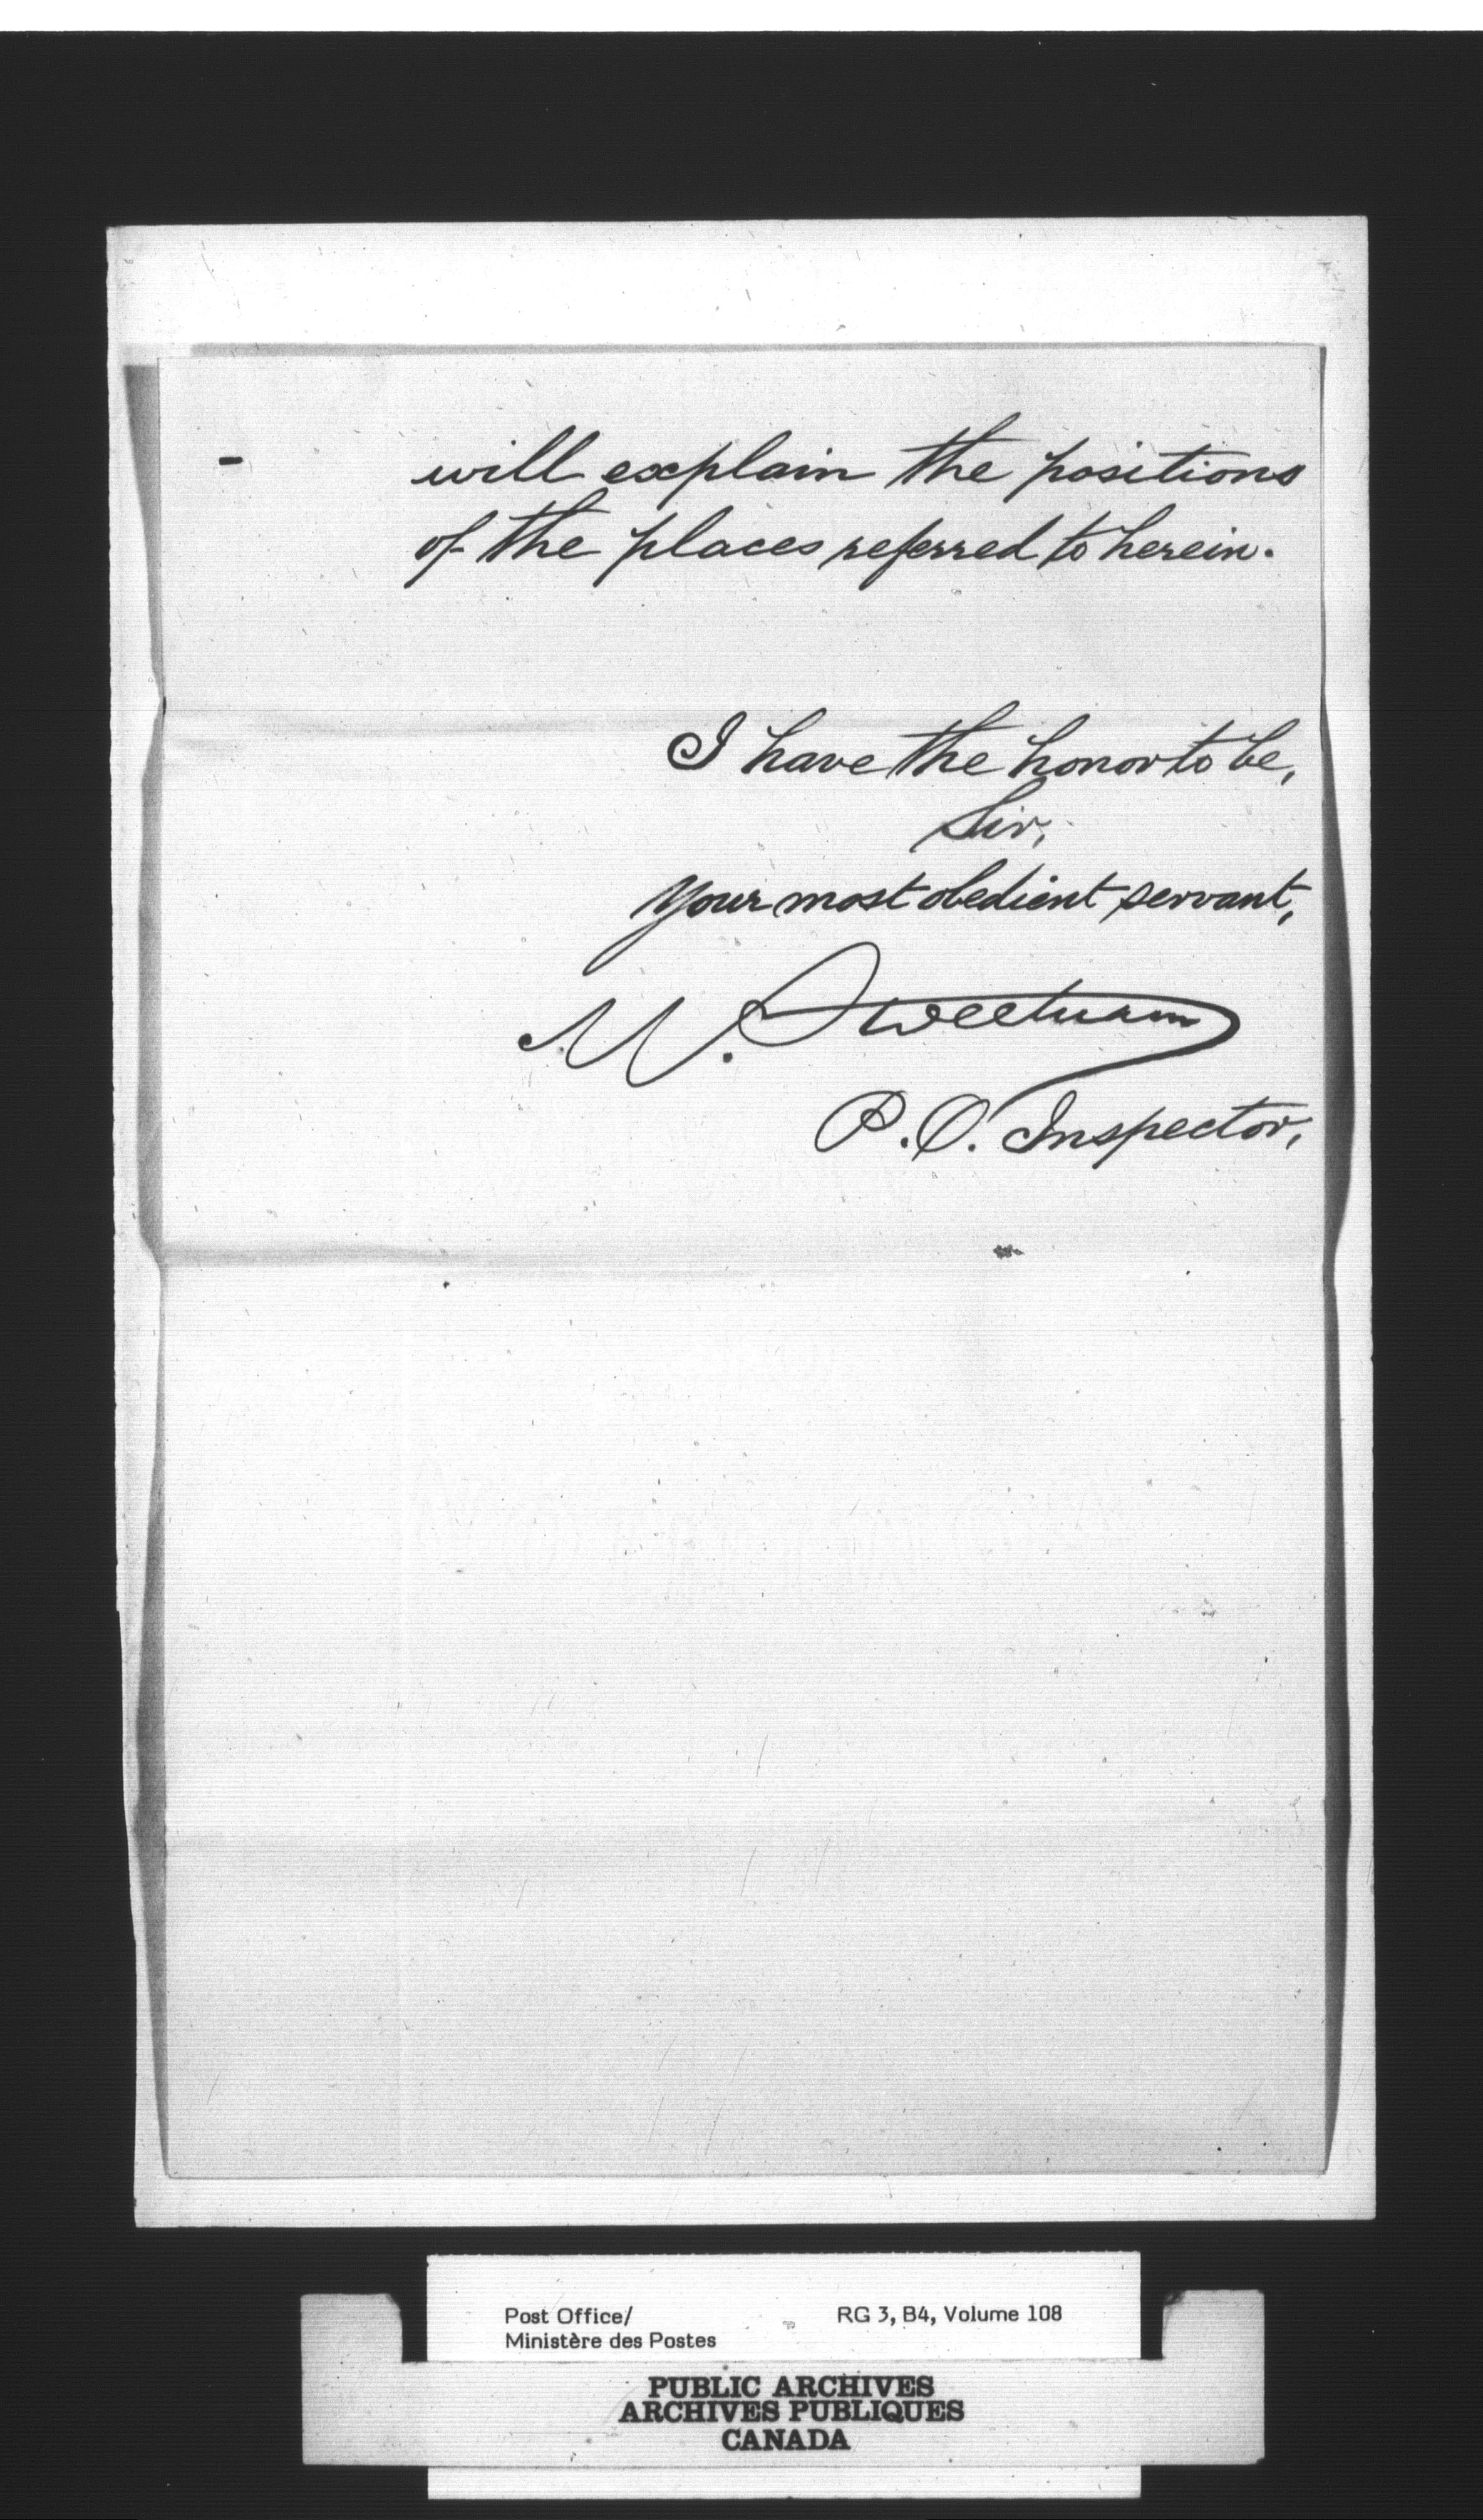 will explain the positions
of the places referred to herein.
I have the honor to be,
Sir,
Your most obedient servant,
M. Sweetnam
P.O. Inspector,
Post Office/
Ministère des Postes
RG 3, B4, Volume 108
PUBLIC ARCHIVES
ARCHIVES PUBLIQUES
CANADA